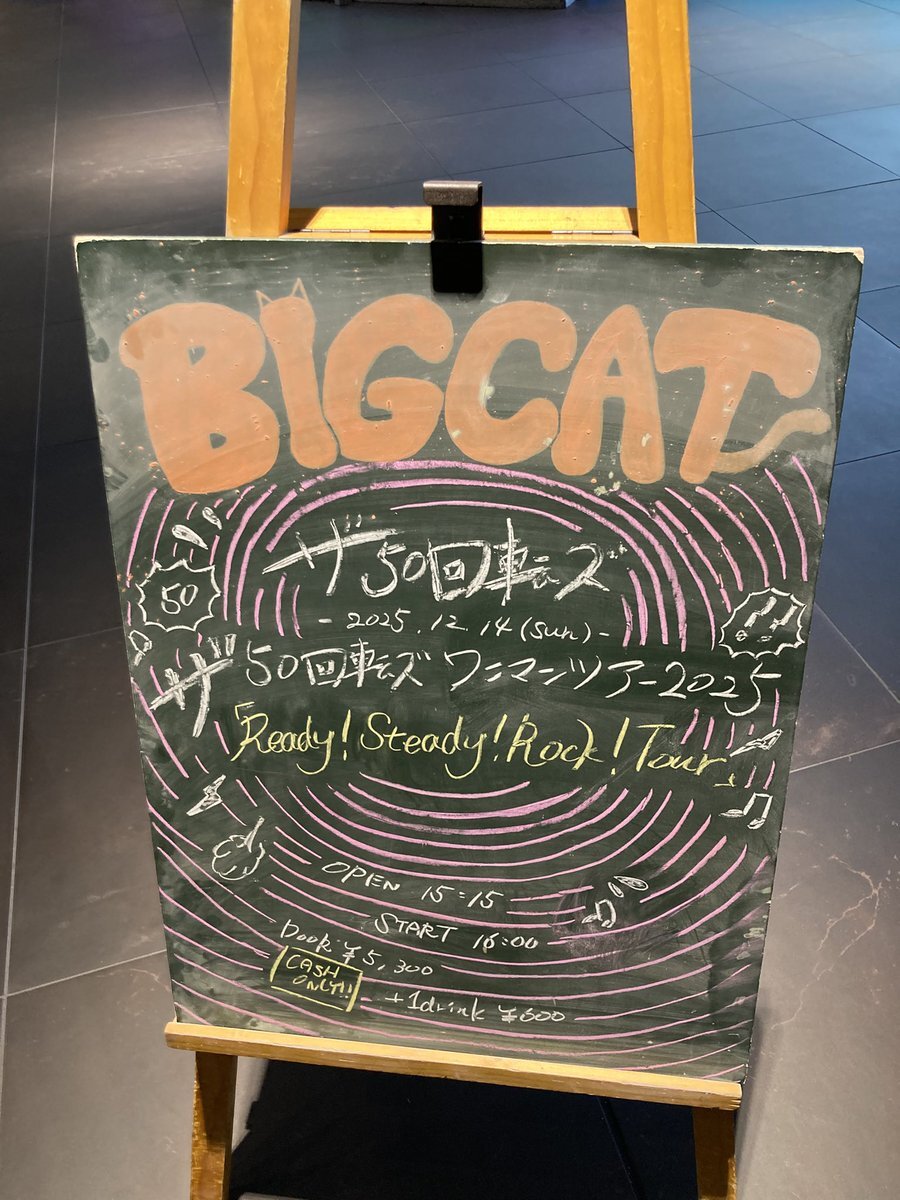 BIGCAT
ザ50回転ズ
50
- 2025.12.14 (sun) -
ザ50回転ズ ワンマンツアー2025
「Ready! Steady! Rock! Tour」
OPEN 15:15
START 16:00
Door ¥5,300
CASH ONLY!!
+1drink ¥600